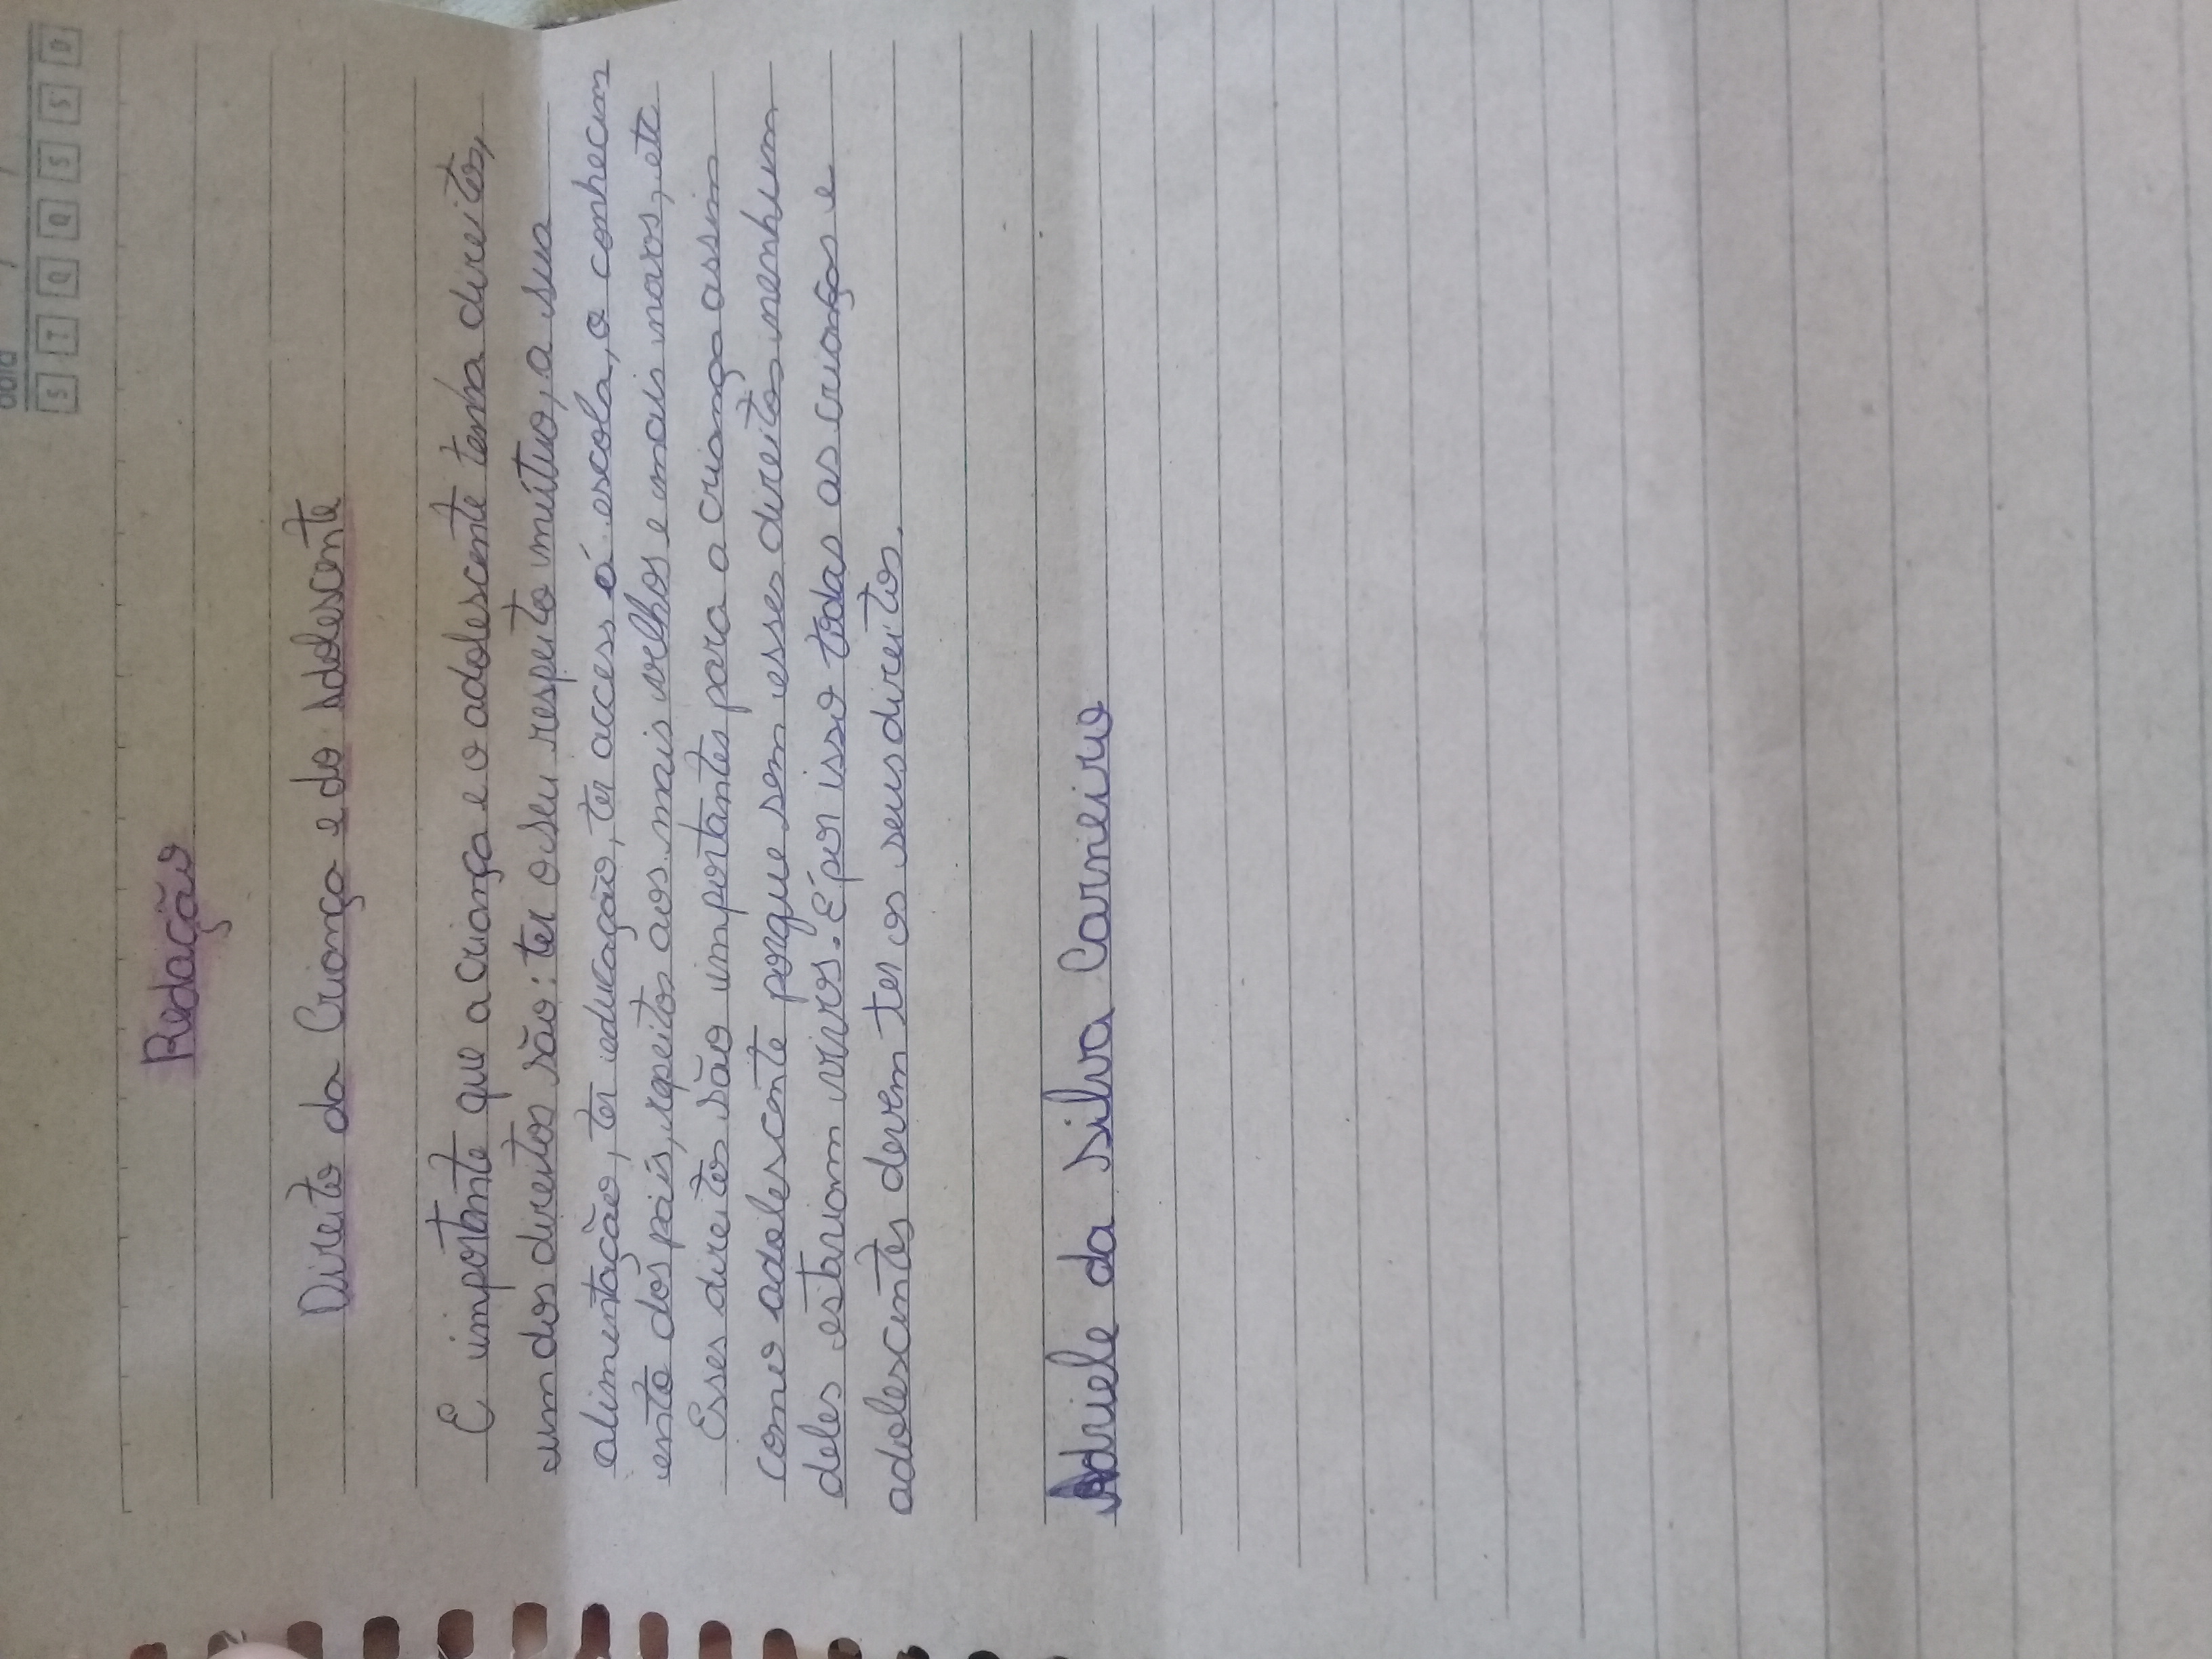 data / /
S T Q Q S S D
Redação
Direito da Criança e do Adolescente
E importante que a criança e o adolescente tenha direitos,
um dos direitos são: ter o seu respeito mútuo, a sua
alimentação, ter educação, ter access á escola, o conhecim
ento dos país, repeitos aos mais velhos e mais novos, etc
Esses direitos são importantes para a criança assim
como adolescente porque sem esses direitos nenhum
deles estariam vivos. É por isso todas as crianças e
adolescentes devem ter os seus direitos.
Adriele da Silva Carneiro